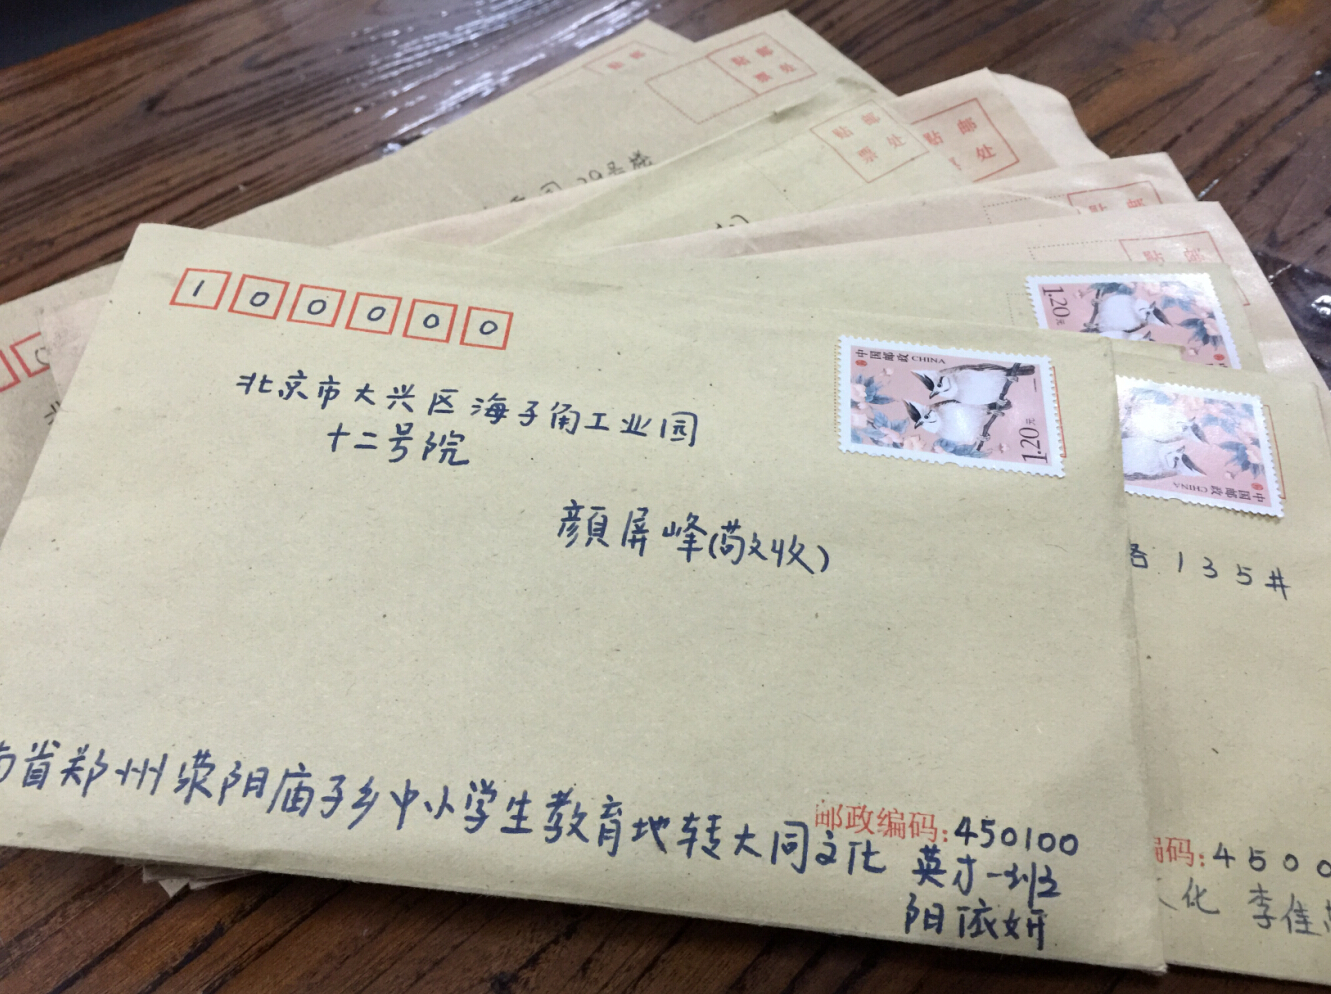 100000
北京市大兴区海子角工业园
十二号院
颜屏峰(敬收)
中国邮政 CHINA
1.20元
南省郑州荥阳庙子乡中小学生教育地转大同文化
邮政编码:450100
英才一班
阳依妍
贴邮
票处
贴邮
票处
贴邮
处
29号楼
1.20元
中国邮政 CHINA
135井
编码:4500
文化 李佳